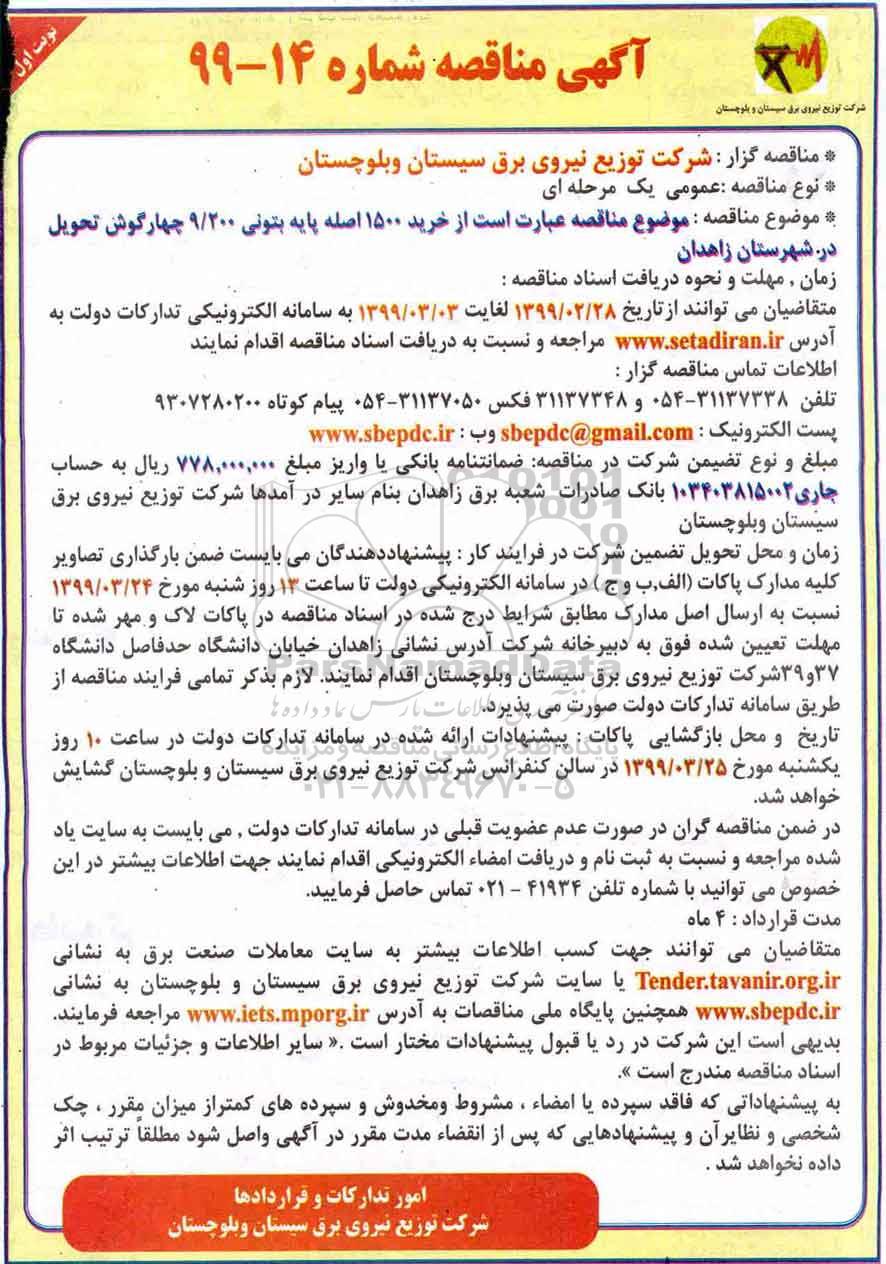 نوبت اول
آگهی مناقصه شماره ۱۴-۹۹
شرکت توزیع نیروی برق سیستان و بلوچستان
* مناقصه گزار : شرکت توزیع نیروی برق سیستان وبلوچستان
* نوع مناقصه :عمومی یک مرحله ای
* موضوع مناقصه : موضوع مناقصه عبارت است از خرید ۱۵۰۰ اصله پایه بتونی ۹/۲۰۰ چهارگوش تحویل
در شهرستان زاهدان
زمان , مهلت و نحوه دریافت اسناد مناقصه :
متقاضیان می توانند ازتاریخ ۱۳۹۹/۰۲/۲۸ لغایت ۱۳۹۹/۰۳/۰۳ به سامانه الکترونیکی تدارکات دولت به
آدرس www.setadiran.ir مراجعه و نسبت به دریافت اسناد مناقصه اقدام نمایند
اطلاعات تماس مناقصه گزار :
تلفن ۳۱۱۳۷۳۳۸-۰۵۴ و ۳۱۱۳۷۳۴۸ فکس ۳۱۱۳۷۰۵۰-۰۵۴ پیام کوتاه ۹۳۰۷۲۸۰۲۰۰
پست الکترونیک : sbepdc@gmail.com وب : www.sbepdc.ir
مبلغ و نوع تضیمن شرکت در مناقصه: ضمانتنامه بانکی یا واریز مبلغ ۷۷۸,۰۰۰,۰۰۰ ریال به حساب
جاری۱۰۳۴۰۳۸۱۵۰۰۲ بانک صادرات شعبه برق زاهدان بنام سایر در آمدها شرکت توزیع نیروی برق
سیستان وبلوچستان
زمان و محل تحویل تضمین شرکت در فرایند کار : پیشنهاددهندگان می بایست ضمن بارگذاری تصاویر
کلیه مدارک پاکات (الف,ب وج ) در سامانه الکترونیکی دولت تا ساعت ۱۳ روز شنبه مورخ ۱۳۹۹/۰۳/۲۴
نسبت به ارسال اصل مدارک مطابق شرایط درج شده در اسناد مناقصه در پاکات لاک و مهر شده تا
مهلت تعیین شده فوق به دبیرخانه شرکت آدرس نشانی زاهدان خیابان دانشگاه حدفاصل دانشگاه
۳۷و۳۹شرکت توزیع نیروی برق سیستان وبلوچستان اقدام نمایند. لازم بذکر تمامی فرایند مناقصه از
طریق سامانه تدارکات دولت صورت می پذیرد.
تاریخ و محل بازگشایی پاکات : پیشنهادات ارائه شده در سامانه تدارکات دولت در ساعت ۱۰ روز
یکشنبه مورخ ۱۳۹۹/۰۳/۲۵ در سالن کنفرانس شرکت توزیع نیروی برق سیستان و بلوچستان گشایش
خواهد شد.
در ضمن مناقصه گران در صورت عدم عضویت قبلی در سامانه تدارکات دولت , می بایست به سایت یاد
شده مراجعه و نسبت به ثبت نام و دریافت امضاء الکترونیکی اقدام نمایند جهت اطلاعات بیشتر در این
خصوص می توانید با شماره تلفن ۴۱۹۳۴ - ۰۲۱ تماس حاصل فرمایید.
مدت قرارداد : ۴ ماه
متقاضیان می توانند جهت کسب اطلاعات بیشتر به سایت معاملات صنعت برق به نشانی
Tender.tavanir.org.ir یا سایت شرکت توزیع نیروی برق سیستان و بلوچستان به نشانی
www.sbepdc.ir همچنین پایگاه ملی مناقصات به آدرس www.iets.mporg.ir مراجعه فرمایند.
بدیهی است این شرکت در رد یا قبول پیشنهادات مختار است .« سایر اطلاعات و جزئیات مربوط در
اسناد مناقصه مندرج است ».
به پیشنهاداتی که فاقد سپرده یا امضاء ، مشروط ومخدوش و سپرده های کمتراز میزان مقرر ، چک
شخصی و نظایرآن و پیشنهادهایی که پس از انقضاء مدت مقرر در آگهی واصل شود مطلقاً ترتیب اثر
داده نخواهد شد .
امور تدارکات و قراردادها
شرکت توزیع نیروی برق سیستان وبلوچستان
ParsNamadData
پایگاه اطلاع رسانی مناقصه و مزایده
۰۲۱-۸۸۳۴۹۶۷۰-۵